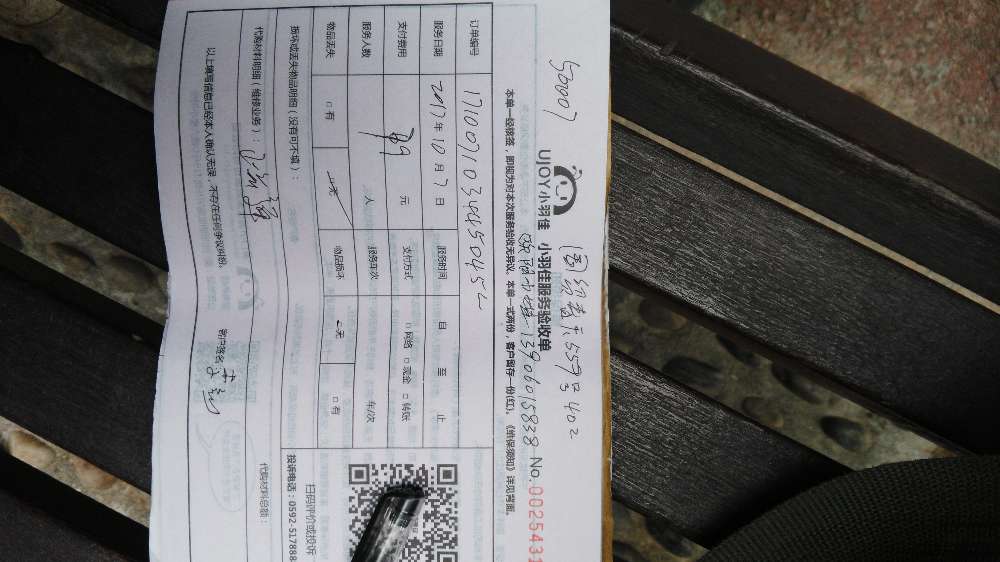 50007
559号402
UJOY小羽佳 小羽佳服务验收单
13906015838 No. 0025431
本单一经核签，即视为对本次服务验收无异议。本单一式两份，客户留存一份(红)。《维保须知》详见背面。
订单编号
服务日期 2017年10月7日 服务时间 自 至 止
支付费用 元 支付方式 □网络 □现金 □转账
服务人数 人 服务车次 车/次
物品丢失 □有 □无 物品损坏 □无 □有
损坏或丢失物品明细（没有可不填）：
代购材料明细（维修业务）： 代购材料总额：
以上填写信息已经本人确认无误，不存在任何争议纠纷。 客户签名
扫码评价或投诉
投诉电话：0592-5178888